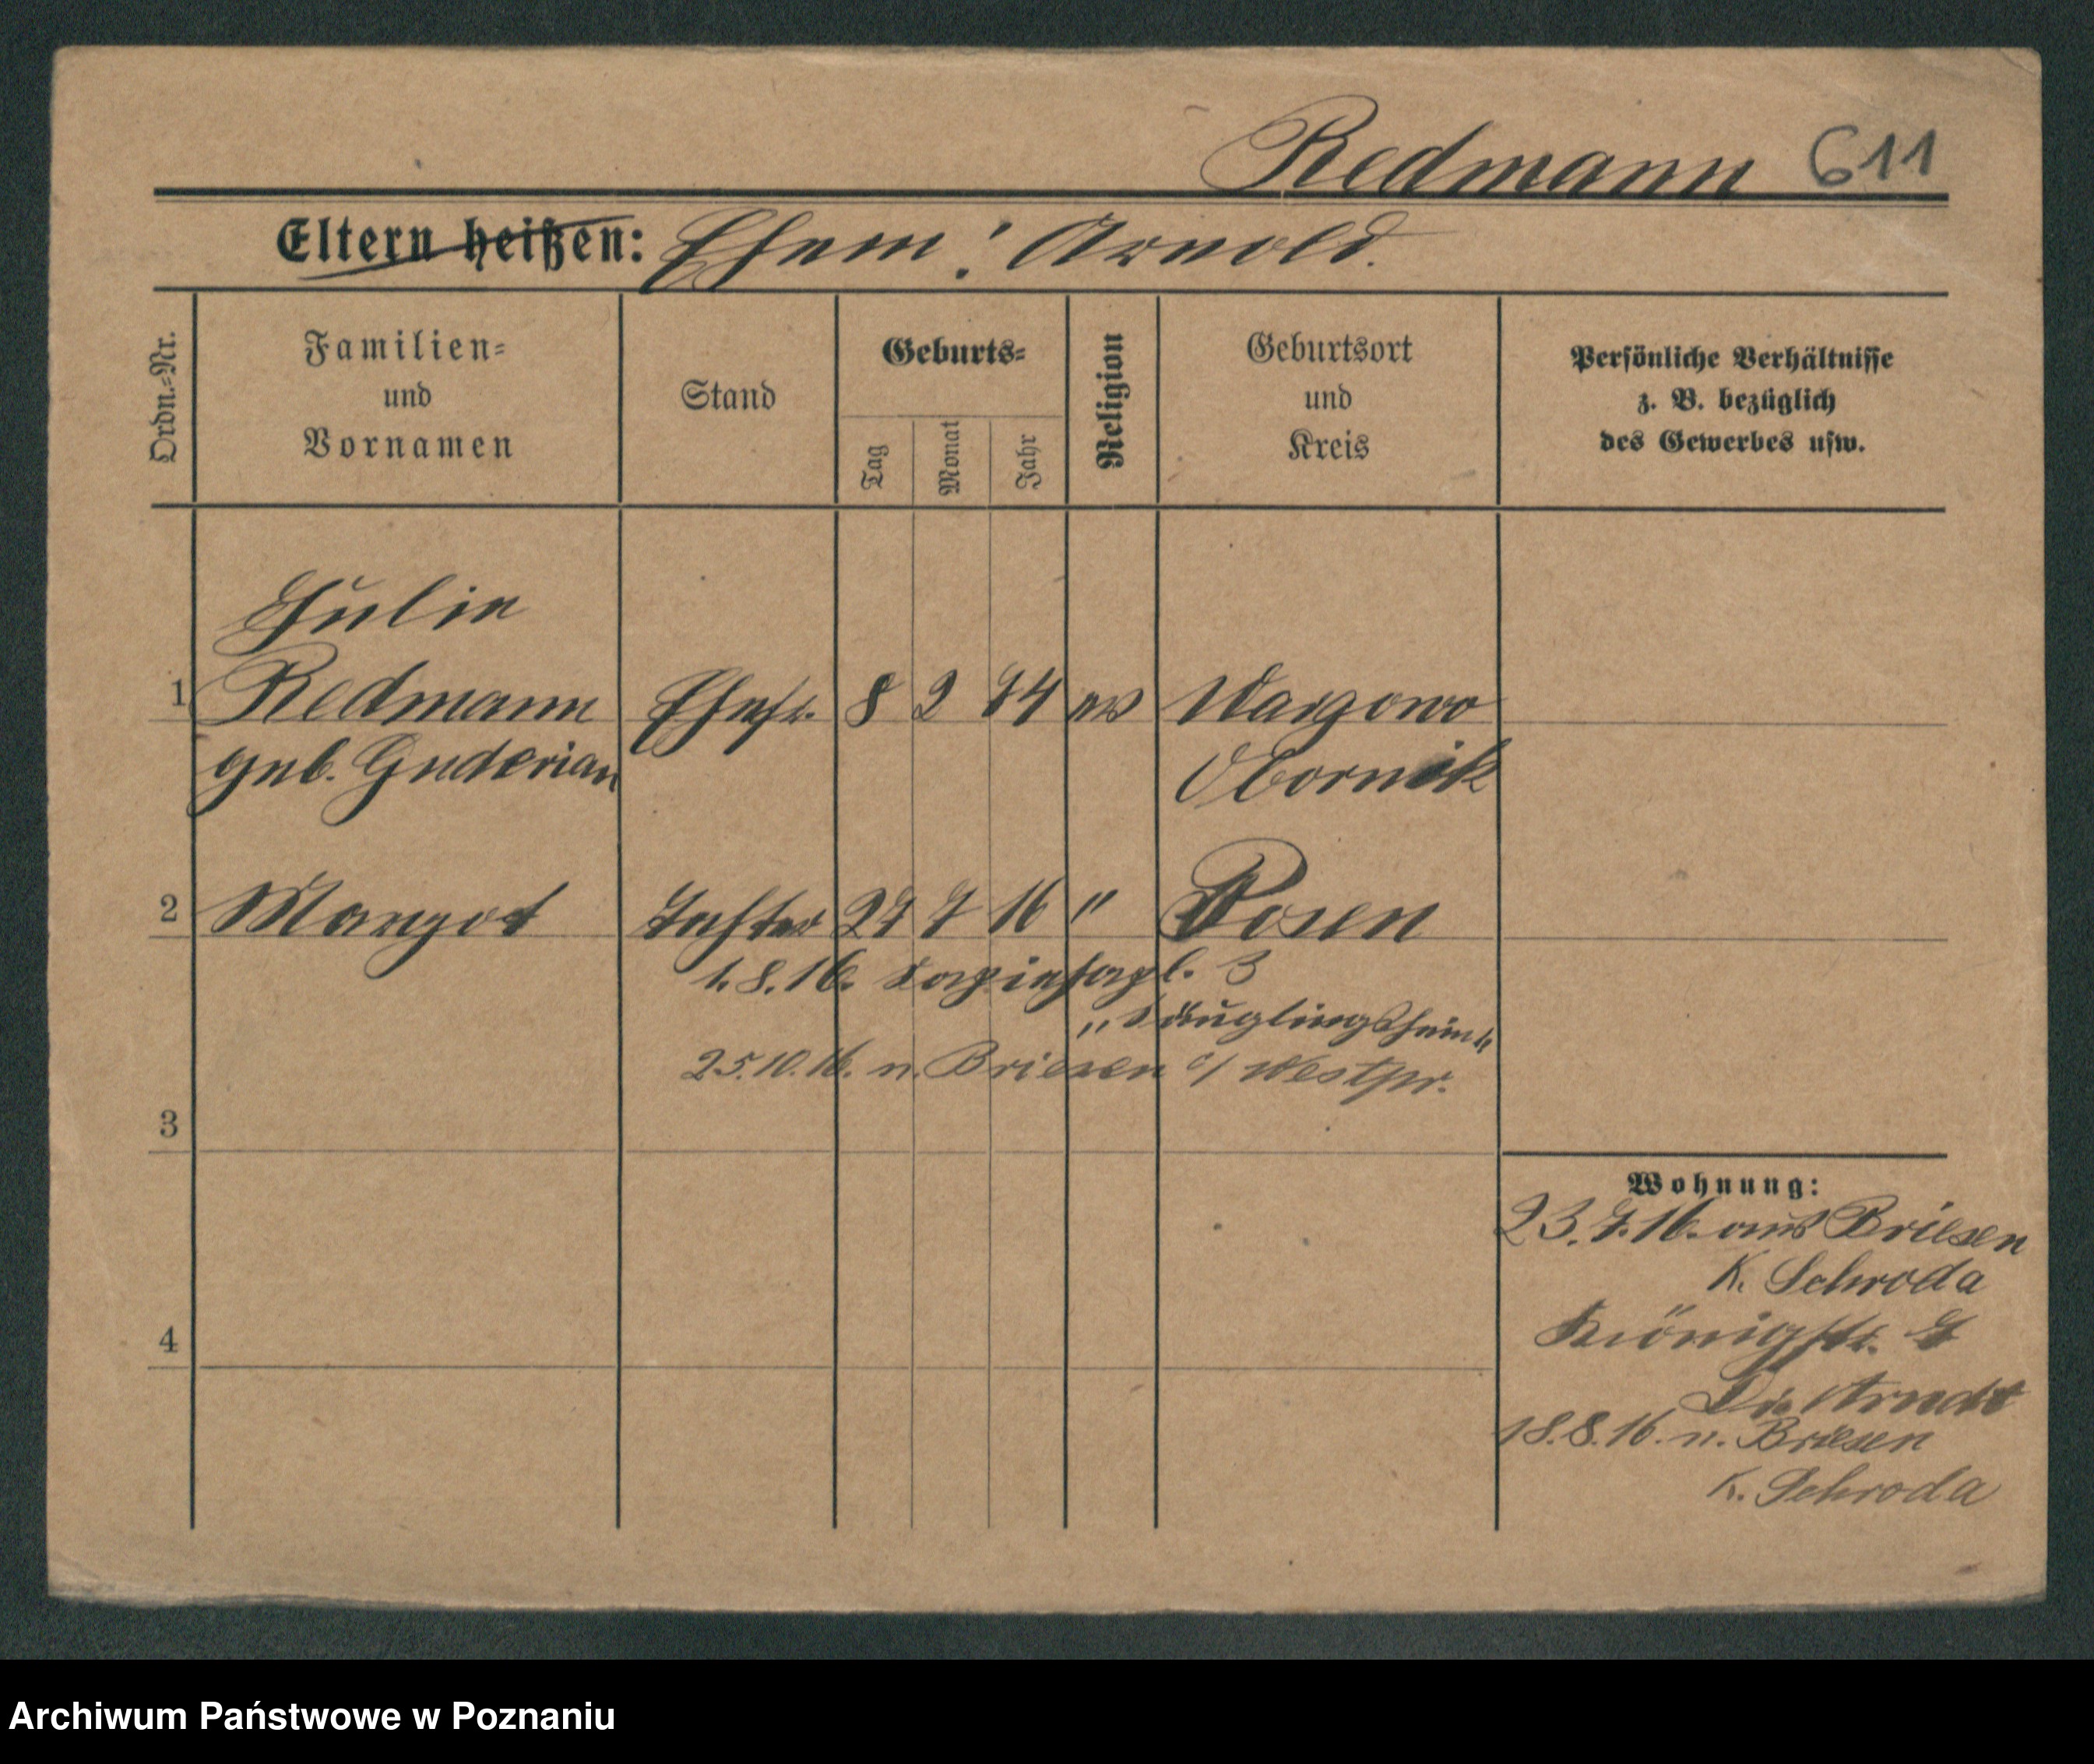 Redmann 611
Eltern heißen: Ehem: Arnold.
Ordn.-Nr.
Familien-
und
Vornamen
Stand
Geburts-
Tag
Monat
Jahr
Religion
Geburtsort
und
Kreis
Persönliche Verhältnisse
z. B. bezüglich
des Gewerbes usw.
Julie
1 Redmann Ehefr. 8 2 84 ev Wargowo
geb. Guderian Obornik
2 Margot Tochter 27 7 16 " Posen
1.8.16. 3
"Säuglingsheim"
25.10.16. n. Briesen /Westpr.
3
Wohnung:
23.7.16. aus Briesen
K. Schroda
Königstr.
4
Arndt
18.8.16. n. Briesen
K. Schroda
Archiwum Państwowe w Poznaniu